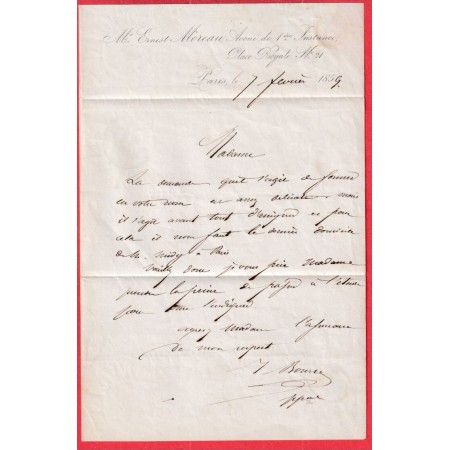 Me Ernest Moreau, Avoué de 1ère Instance,
Place Royale No 21.
Paris, le 7 février 1859.
Madame
La demande qu'il s'agit de former
en votre nom est assez délicate mais
il s'agit avant tout d'assigner et pour
cela il nous faut le dernier domicile
de à Paris
donc je vous prie Madame
prendre la peine de passer à l'étude
pour nous l'indiquer
agréez Madame l'assurance
de mon respect